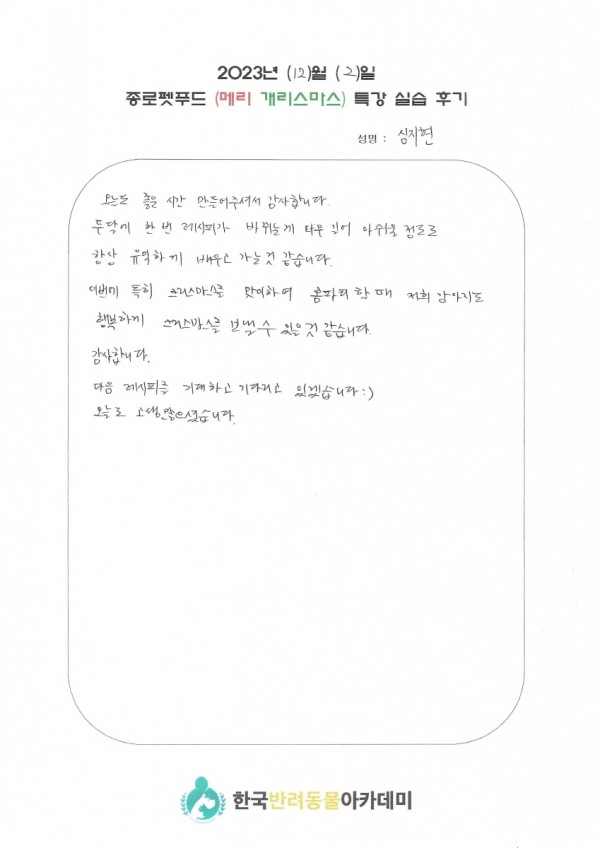 2023년 (12)월 (2)일
종로펫푸드 (메리 개리스마스) 특강 실습 후기
성명 : 심지현
오늘도 좋은 시간 만들어주셔서 감사합니다.
두달에 한 번 레시피가 바뀌는게 너무 길어 아쉬울 정도로
항상 유익하게 배우고 가는것 같습니다.
이번에 특히 크리스마스를 맞이하여 홈파티할때 저희 강아지도
행복하게 크리스마스를 보낼 수 있을것 같습니다.
감사합니다.
다음 레시피를 기대하고 기다리고 있겠습니다:)
오늘도 고생많으셨습니다.
한국반려동물아카데미